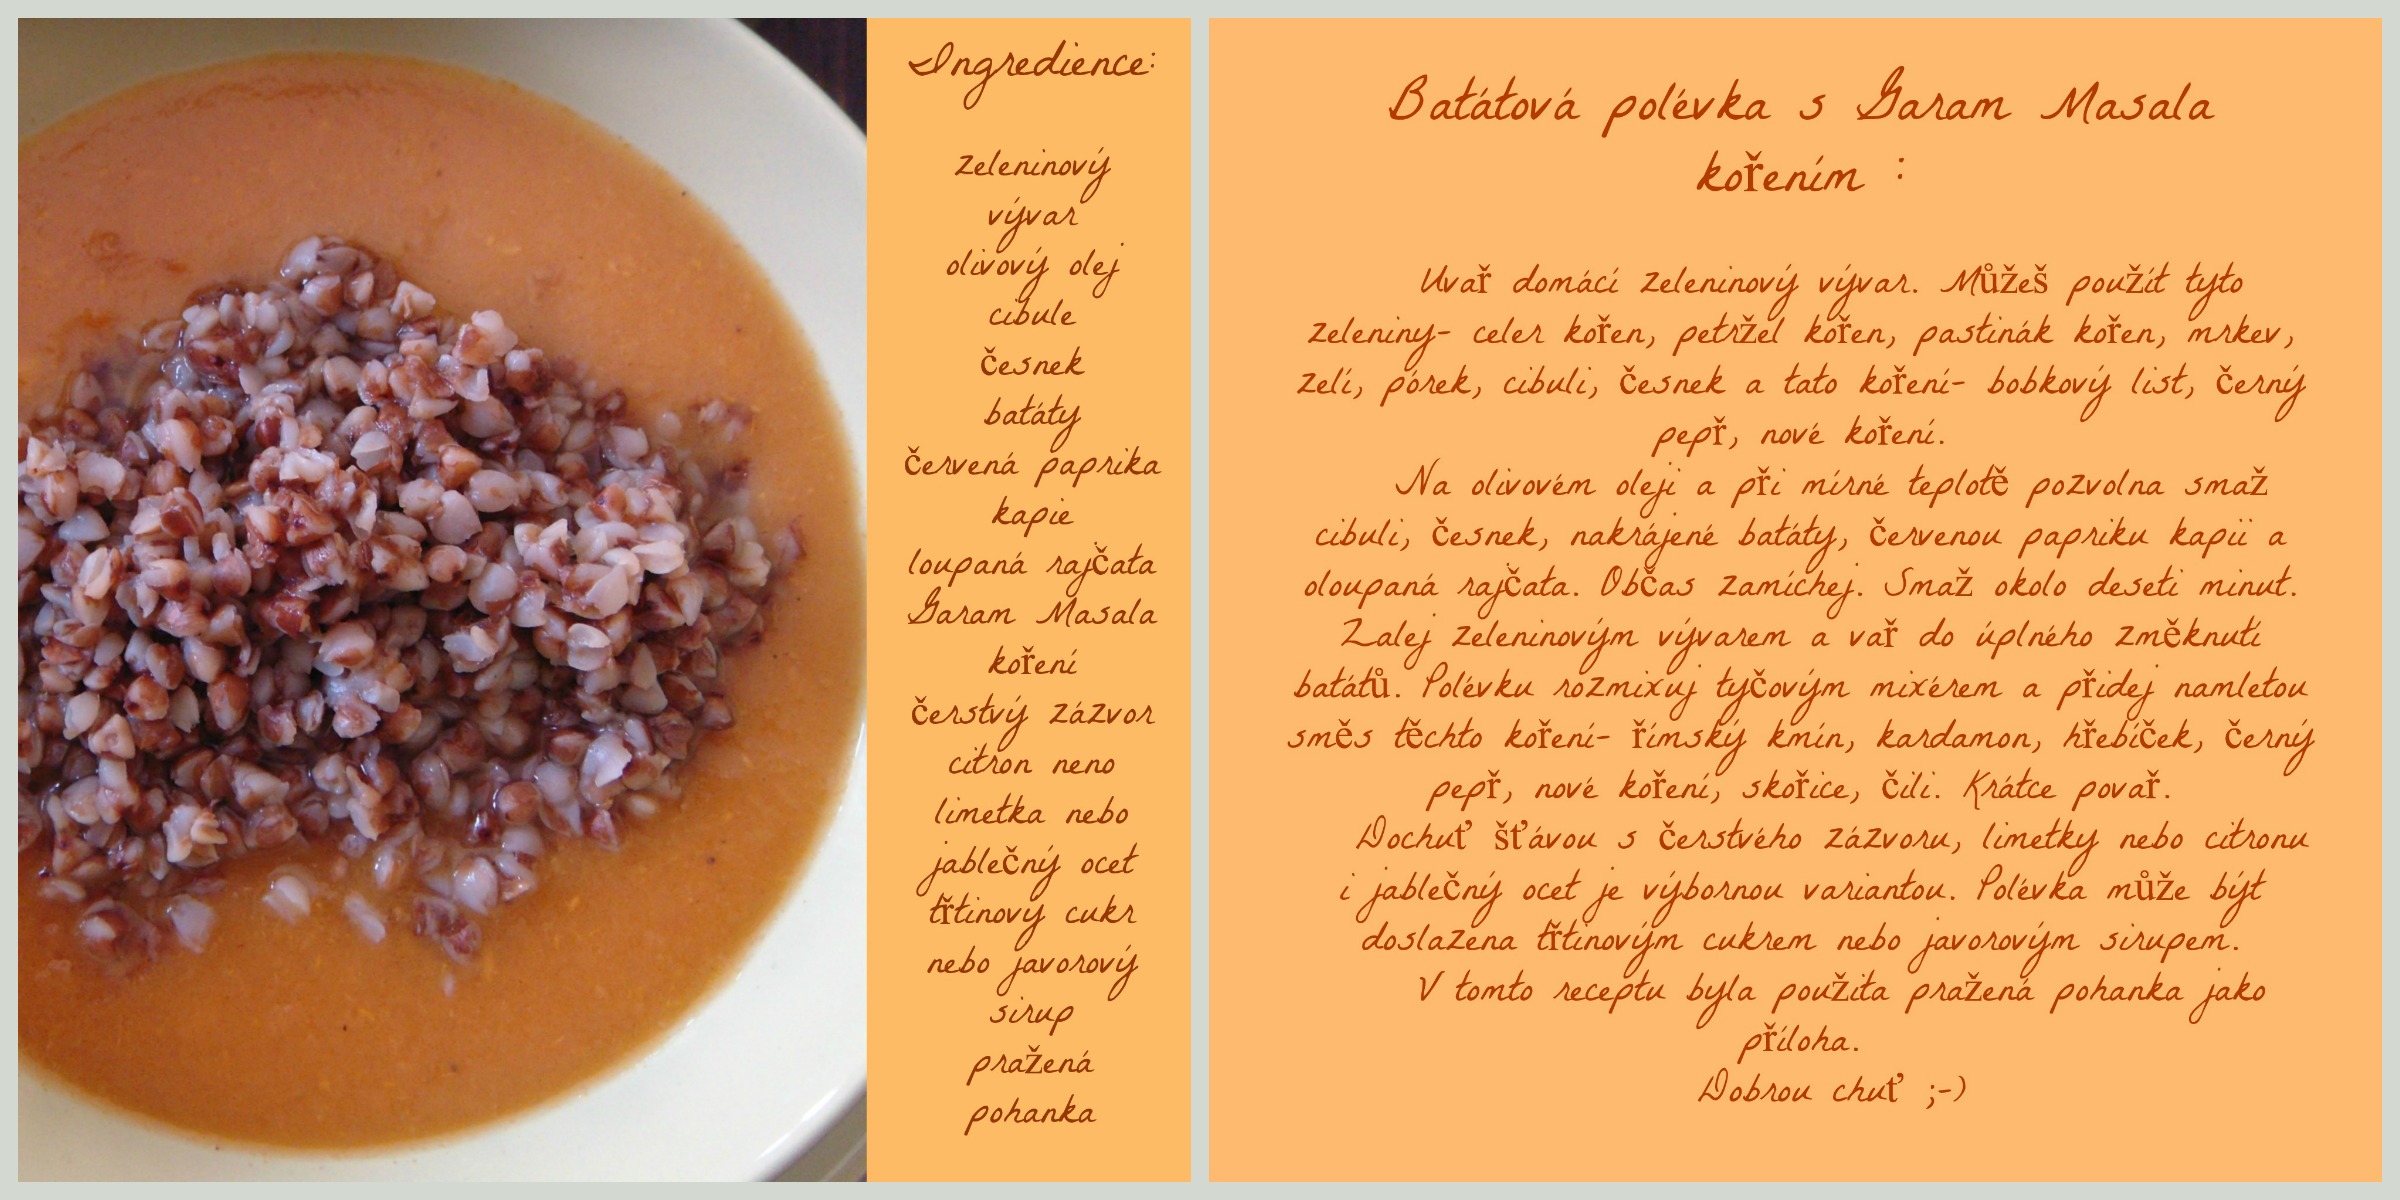 Ingredience:
zeleninový
vývar
olivový olej
cibule
česnek
batáty
červená paprika
kapie
loupaná rajčata
Garam Masala
koření
čerstvý zázvor
citron neno
limetka nebo
jablečný ocet
třtinový cukr
nebo javorový
sirup
pražená
pohanka
Batátová polévka s Garam Masala
kořením :
Uvař domácí zeleninový vývar. Můžeš použít tyto
zeleniny- celer kořen, petržel kořen, pastinák kořen, mrkev,
zelí, pórek, cibuli, česnek a tato koření- bobkový list, černý
pepř, nové koření.
Na olivovém oleji a při mírné teplotě pozvolna smaž
cibuli, česnek, nakrájené batáty, červenou papriku kapii a
oloupaná rajčata. Občas zamíchej. Smaž okolo deseti minut.
Zalej zeleninovým vývarem a vař do úplného změknutí
batátů. Polévku rozmixuj tyčovým mixérem a přidej namletou
směs těchto koření- římský kmín, kardamon, hřebíček, černý
pepř, nové koření, skořice, čili. Krátce povař.
Dochuť šťávou s čerstvého zázvoru, limetky nebo citronu
i jablečný ocet je výbornou variantou. Polévka může být
doslazena třtinovým cukrem nebo javorovým sirupem.
V tomto receptu byla použita pražená pohanka jako
příloha.
Dobrou chuť ;-)